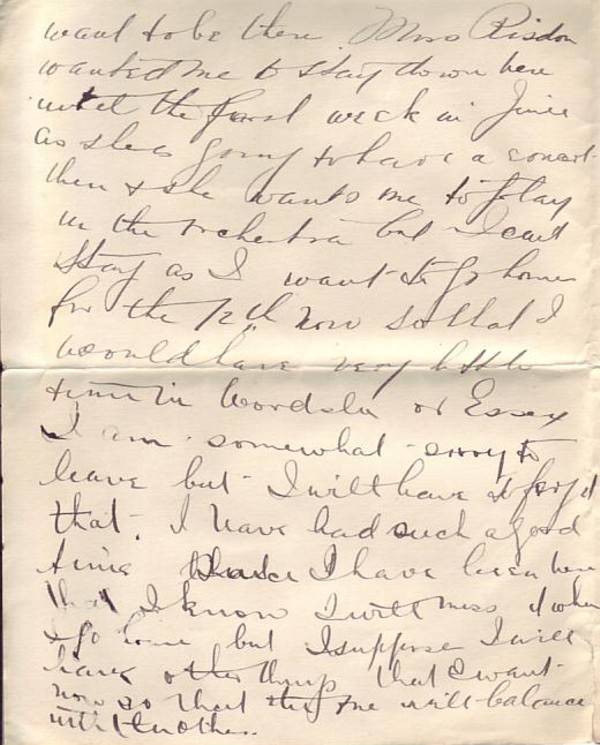 want to be there. Miss Risdon
wanted me to stay down here
until the first week in June
as she is going to have a concert
then & she wants me to play
in the orchestra but I cant
stay as I want to go home
for the 12th now so that I
would have very little
time in or Essex
I am somewhat sorry to
leave but I will have to forget
that. I have had such a good
time I have been here
that I know I will miss it when
I go home but I suppose I will
have other things that I want
now so that the one will balance
with the other..